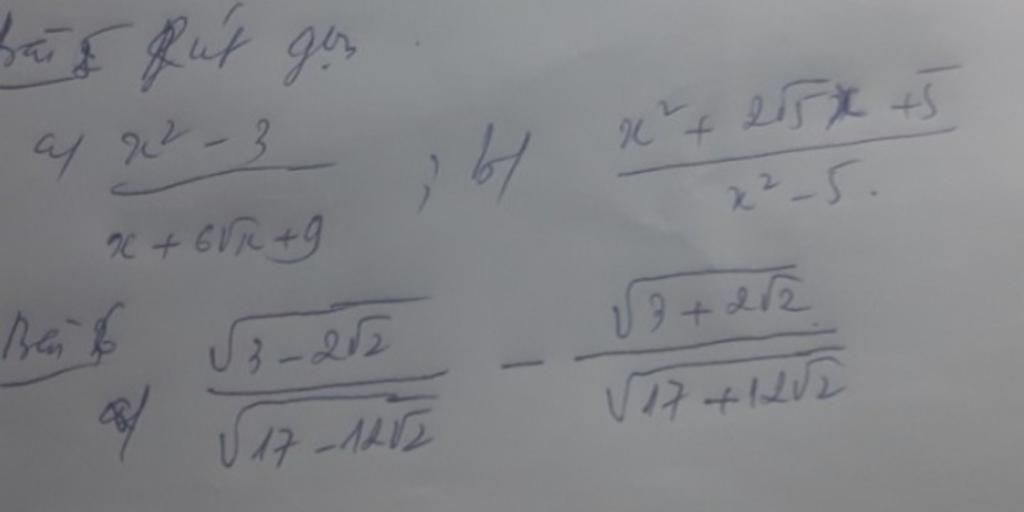 Bài 5 Rút gọn
a) \frac{x² - 3}{x + 6√x + 9} ; b) \frac{x² + 2√5x + 5}{x² - 5}.
Bài 6
a) \frac{√(3 - 2√2)}{√(17 - 12√2)} - \frac{√(3 + 2√2)}{√(17 + 12√2)}